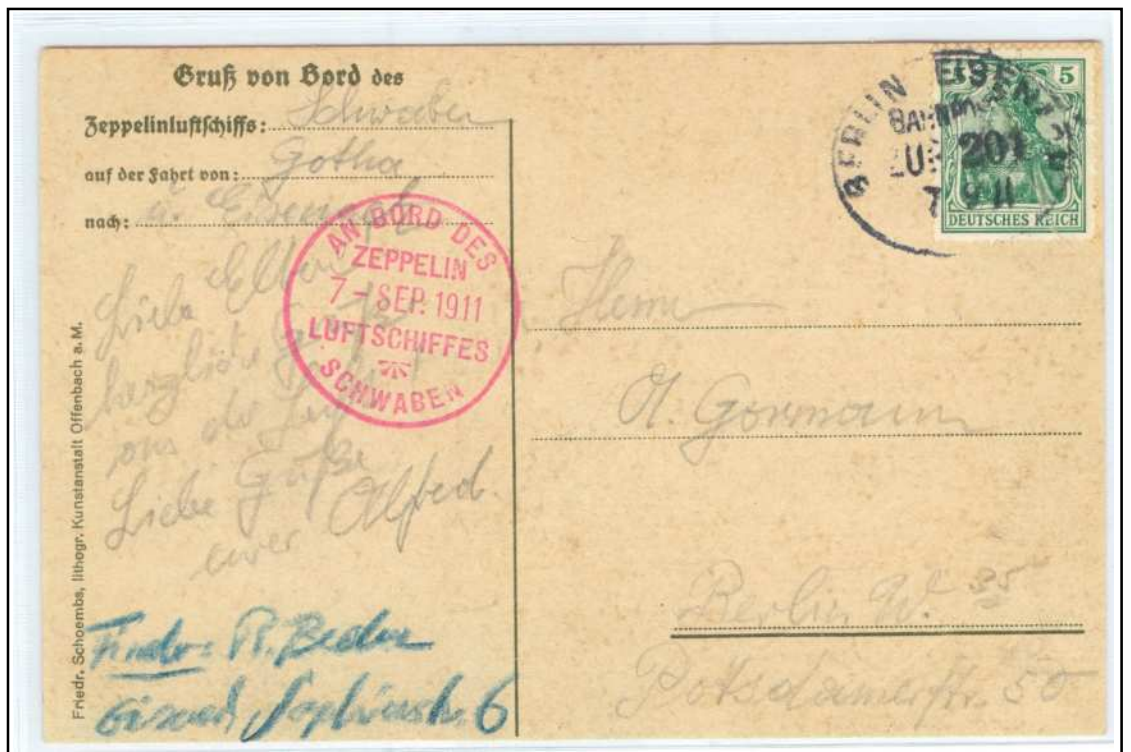 Gruß von Bord des
Zeppelinluftschiffs: Schwaben
auf der Fahrt von: Gotha
nach: u. Eisenach
AN BORD DES
ZEPPELIN
7-SEP. 1911
LUFTSCHIFFES
SCHWABEN
Liebe Eltern
herzliche
aus der
Liebe Grüße
euer Alfred.
Finder: R. Becker
Sophienstr. 6
Friedr. Schoembs, lithogr. Kunstanstalt Offenbach a. M.
BERLIN EISENACH
BAHNPOST
ZUG 201
7 9 11
5
DEUTSCHES REICH
Herrn
A. Gormann
Berlin W. 35
Potsdamerstr. 50